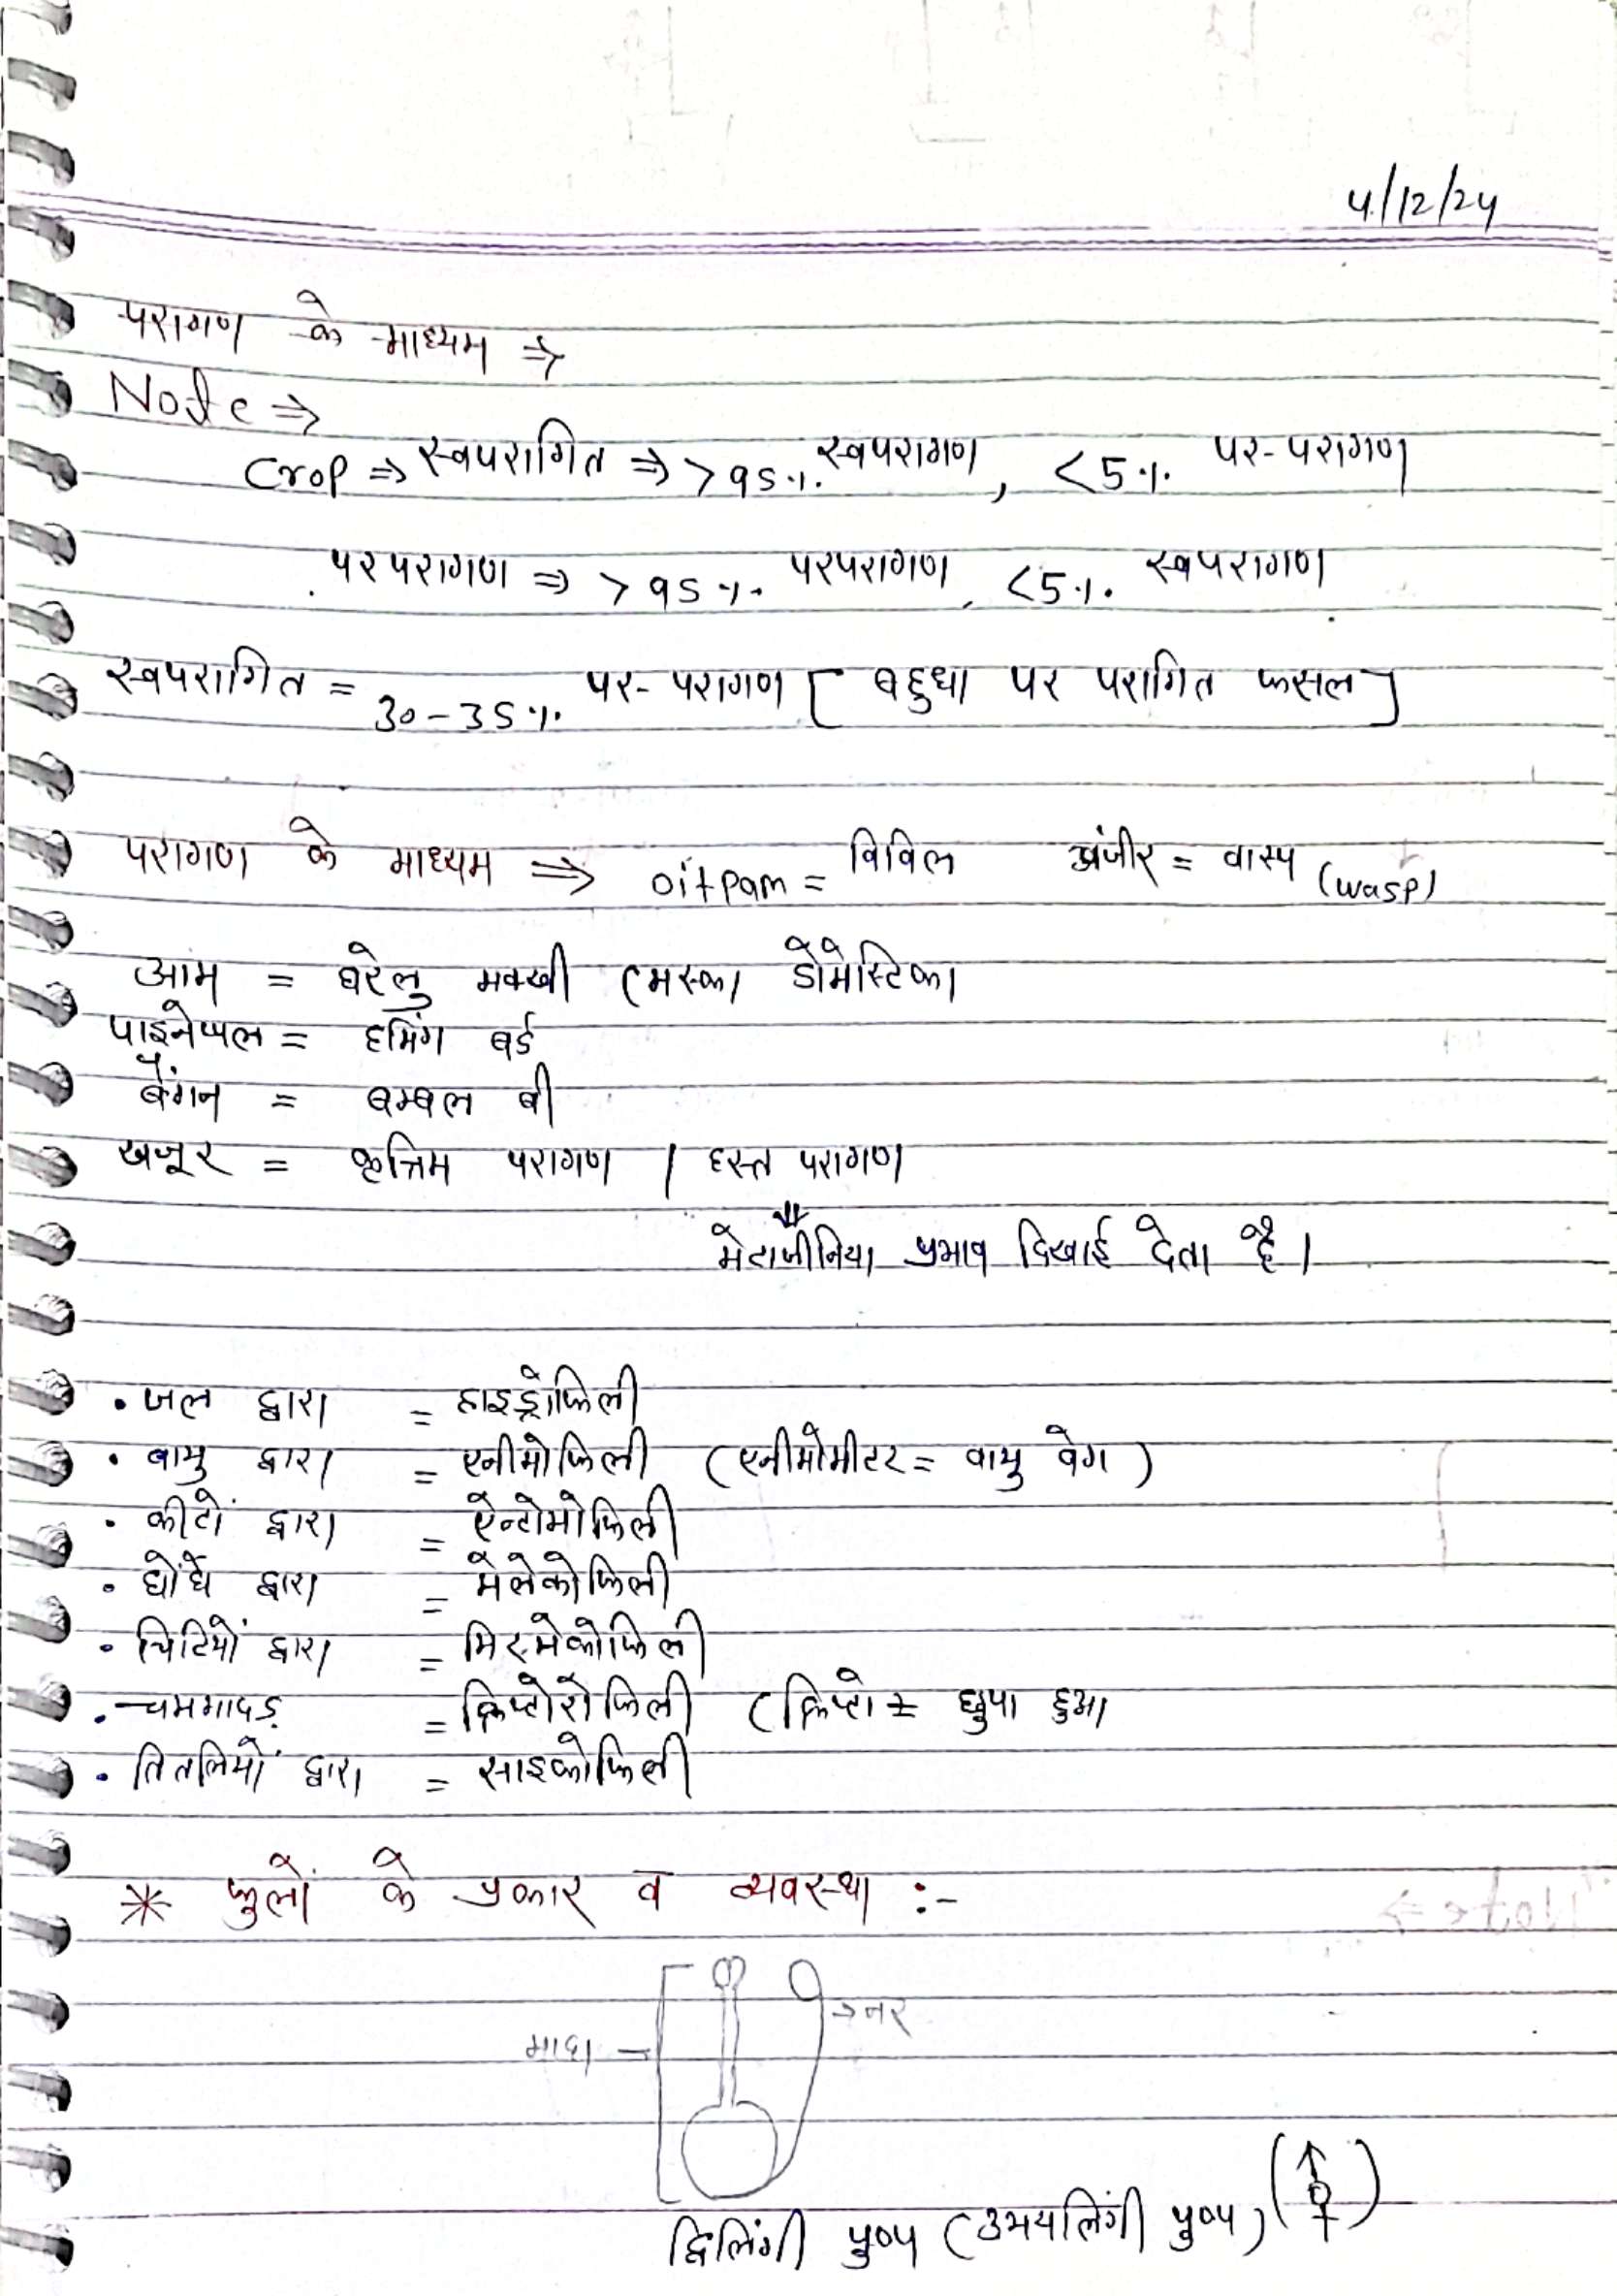 4/12/24
परागण के माध्यम ⇒
Note ⇒
Crop ⇒ स्वपरागित ⇒ > 95%. स्वपरागण, < 5%. पर-परागण
परपरागण ⇒ > 95%. परपरागण, < 5%. स्वपरागण
स्वपरागित = 30-35%. पर-परागण [ बहुधा पर परागित फसल ]
परागण के माध्यम ⇒ oitpam = विविल अंजीर = वास्प (wasp)
आम = घरेलु मक्खी (मस्का डोमेस्टिका
पाइनेप्पल = हमिंग बर्ड
बैंगन = बम्बल बी
खजूर = कृत्तिम परागण / हस्त परागण
⇓
मेटाजीनिया प्रभाव दिखाई देता है।
• जल द्वारा = हाइड्रोफिली
• वायु द्वारा = एनीमोफिली (एनीमोमीटर = वायु वेग)
• कीटों द्वारा = ऐन्टोमोफिली
• घोंघे द्वारा = मेलेकोफिली
• चिटियों द्वारा = मिरमेकोफिली
• चमगादड़ = क्रिप्टोरोफिली (क्रिप्टो = छुपा हुआ
• तितलियों द्वारा = साइकोफिली
* फुलों के प्रकार व व्यवस्था :-
→ नर
मादा →
द्विलिंगी पुष्प (उभयलिंगी पुष्प)